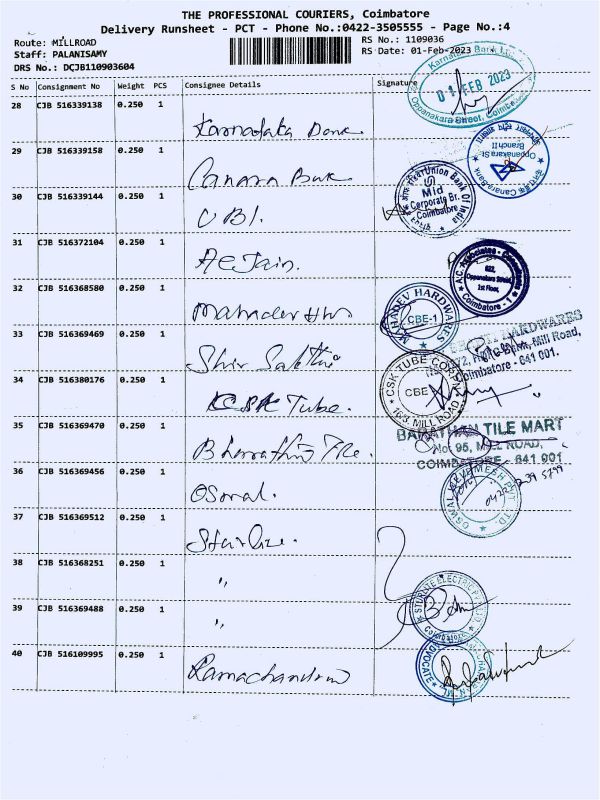 THE PROFESSIONAL COURIERS, Coimbatore
Delivery Runsheet - PCT - Phone No.:0422-3505555 - Page No.:4
Route: MILLROAD
Staff: PALANISAMY
DRS No.: DCJB110903604
RS No.: 1109036
RS Date: 01-Feb-2023
S No Consignment No Weight PCS Consignee Details Signature
28 CJB 516339138 0.250 1 Karnataka Bank
Karnataka Bank
01 FEB 2023
Oppanakara Street, Coimbatore
29 CJB 516339158 0.250 1 Canara Bank
Canara Bank Oppanakara St. Branch II
30 CJB 516339144 0.250 1 UBI.
Union Bank Of India
Mid Corporate Br. Coimbatore
31 CJB 516372104 0.250 1 AC Jain.
A.C. Associates
Oppanakara Street, 1st Floor, Coimbatore - 1
32 CJB 516368580 0.250 1 Mahadev HW
MAHADEV HARDWARES CBE-1
33 CJB 516369469 0.250 1 Shiv Sakthi
HARDWARES
Mill Road,
Coimbatore - 641 001.
34 CJB 516380176 0.250 1 CSK Tube.
CSK TUBE CORPN
CBE
163, MILL ROAD
35 CJB 516369470 0.250 1 Bharathin Tile.
TILE MART
No. 95, MILL ROAD,
COIMBATORE - 641 001
36 CJB 516369456 0.250 1 Oswal.
OSWAL PVT. LTD.
37 CJB 516369512 0.250 1 Starlite.
38 CJB 516368251 0.250 1 "
ELECTRIC
Coimbatore
39 CJB 516369488 0.250 1 "
40 CJB 516109995 0.250 1 Ramachandran
ADVOCATE